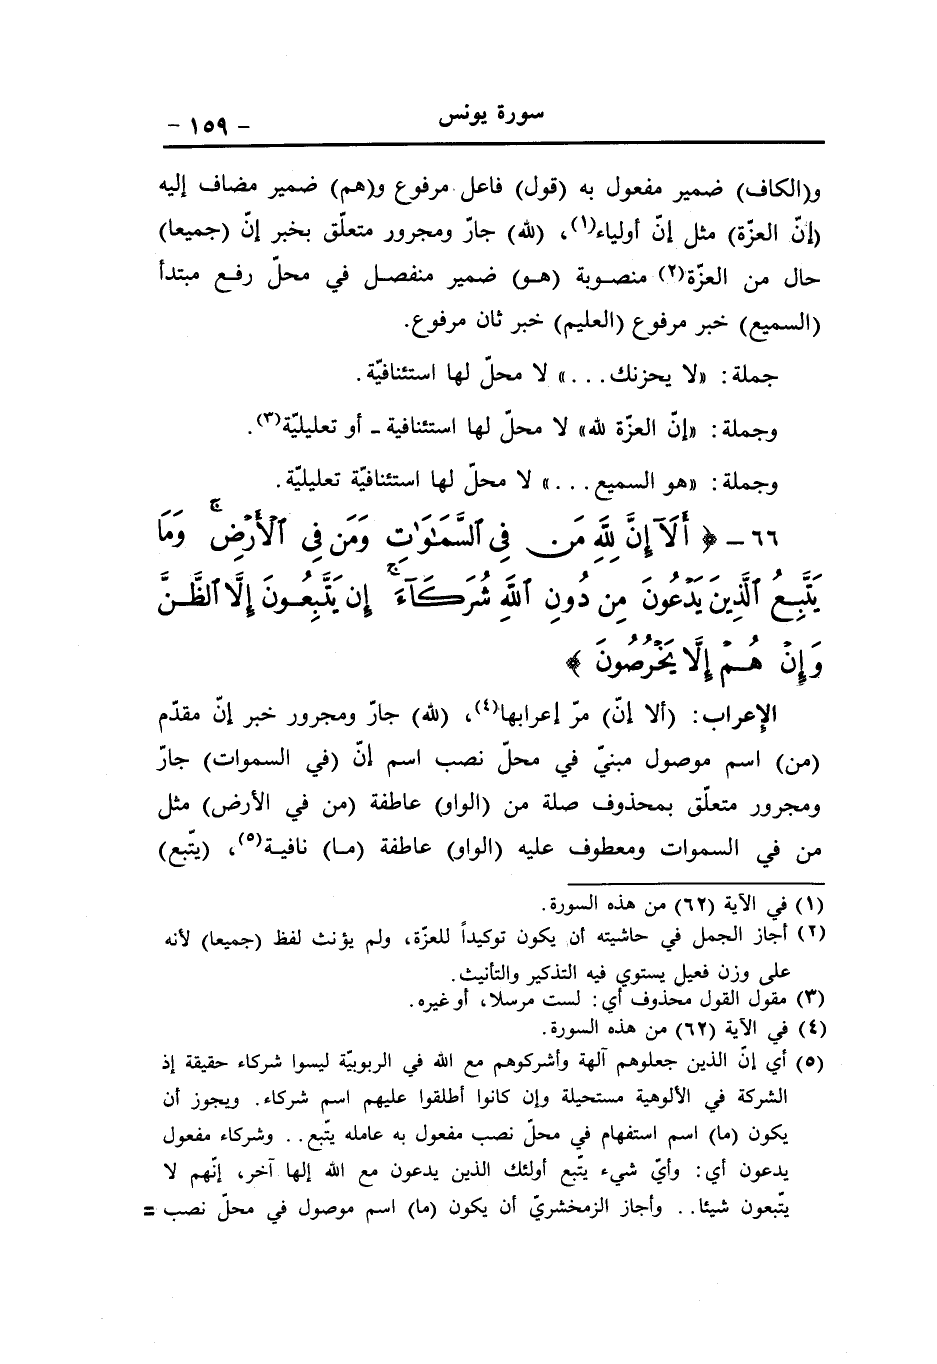 سورة يونس
- ١٥٩ -
و(الكاف) ضمير مفعول به (قول) فاعل مرفوع و(هم) ضمير مضاف إليه
(إنّ العزّة) مثل إنّ أولياء(١)، (لله) جارّ ومجرور متعلّق بخبر إنّ (جميعا)
حال من العزّة(٢) منصوبة (هو) ضمير منفصل في محلّ رفع مبتدأ
(السميع) خبر مرفوع (العليم) خبر ثان مرفوع.
جملة: «لا يحزنك...» لا محلّ لها استئنافيّة.
وجملة: «إنّ العزّة لله» لا محلّ لها استئنافية - أو تعليليّة(٣).
وجملة: «هو السميع...» لا محلّ لها استئنافيّة تعليليّة.
٦٦ - ﴿ أَلَآ إِنَّ لِلَّهِ مَن فِى ٱلسَّمَٰوَٰتِ وَمَن فِى ٱلْأَرْضِ ۗ وَمَا
يَتَّبِعُ ٱلَّذِينَ يَدْعُونَ مِن دُونِ ٱللَّهِ شُرَكَآءَ ۚ إِن يَتَّبِعُونَ إِلَّا ٱلظَّنَّ
وَإِنْ هُمْ إِلَّا يَخْرُصُونَ ﴾
الإعراب: (ألا إنّ) مرّ إعرابها(٤)، (لله) جارّ ومجرور خبر إنّ مقدّم
(من) اسم موصول مبنيّ في محلّ نصب اسم إنّ (في السموات) جارّ
ومجرور متعلّق بمحذوف صلة من (الواو) عاطفة (من في الأرض) مثل
من في السموات ومعطوف عليه (الواو) عاطفة (ما) نافية(٥)، (يتّبع)
(١) في الآية (٦٢) من هذه السورة.
(٢) أجاز الجمل في حاشيته أن يكون توكيداً للعزّة، ولم يؤنث لفظ (جميعا) لأنه
على وزن فعيل يستوي فيه التذكير والتأنيث.
(٣) مقول القول محذوف أي: لست مرسلا، أو غيره.
(٤) في الآية (٦٢) من هذه السورة.
(٥) أي إنّ الذين جعلوهم آلهة وأشركوهم مع الله في الربوبيّة ليسوا شركاء حقيقة إذ
الشركة في الألوهية مستحيلة وإن كانوا أطلقوا عليهم اسم شركاء. ويجوز أن
يكون (ما) اسم استفهام في محلّ نصب مفعول به عامله يتّبع.. وشركاء مفعول
يدعون أي: وأيّ شيء يتّبع أولئك الذين يدعون مع الله إلها آخر، إنّهم لا
يتّبعون شيئا.. وأجاز الزمخشريّ أن يكون (ما) اسم موصول في محلّ نصب =